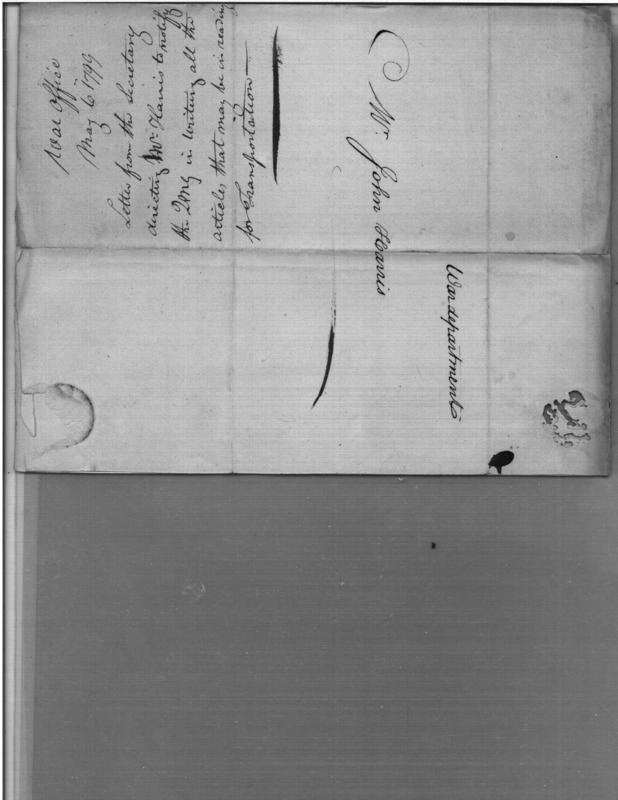 War Office
May 6 1799
Letter from the Secretary
directing Mr Harris to notify
the QMG in writing all the
articles that may be in readiness
for Transportation
Mr. John Harris
War department